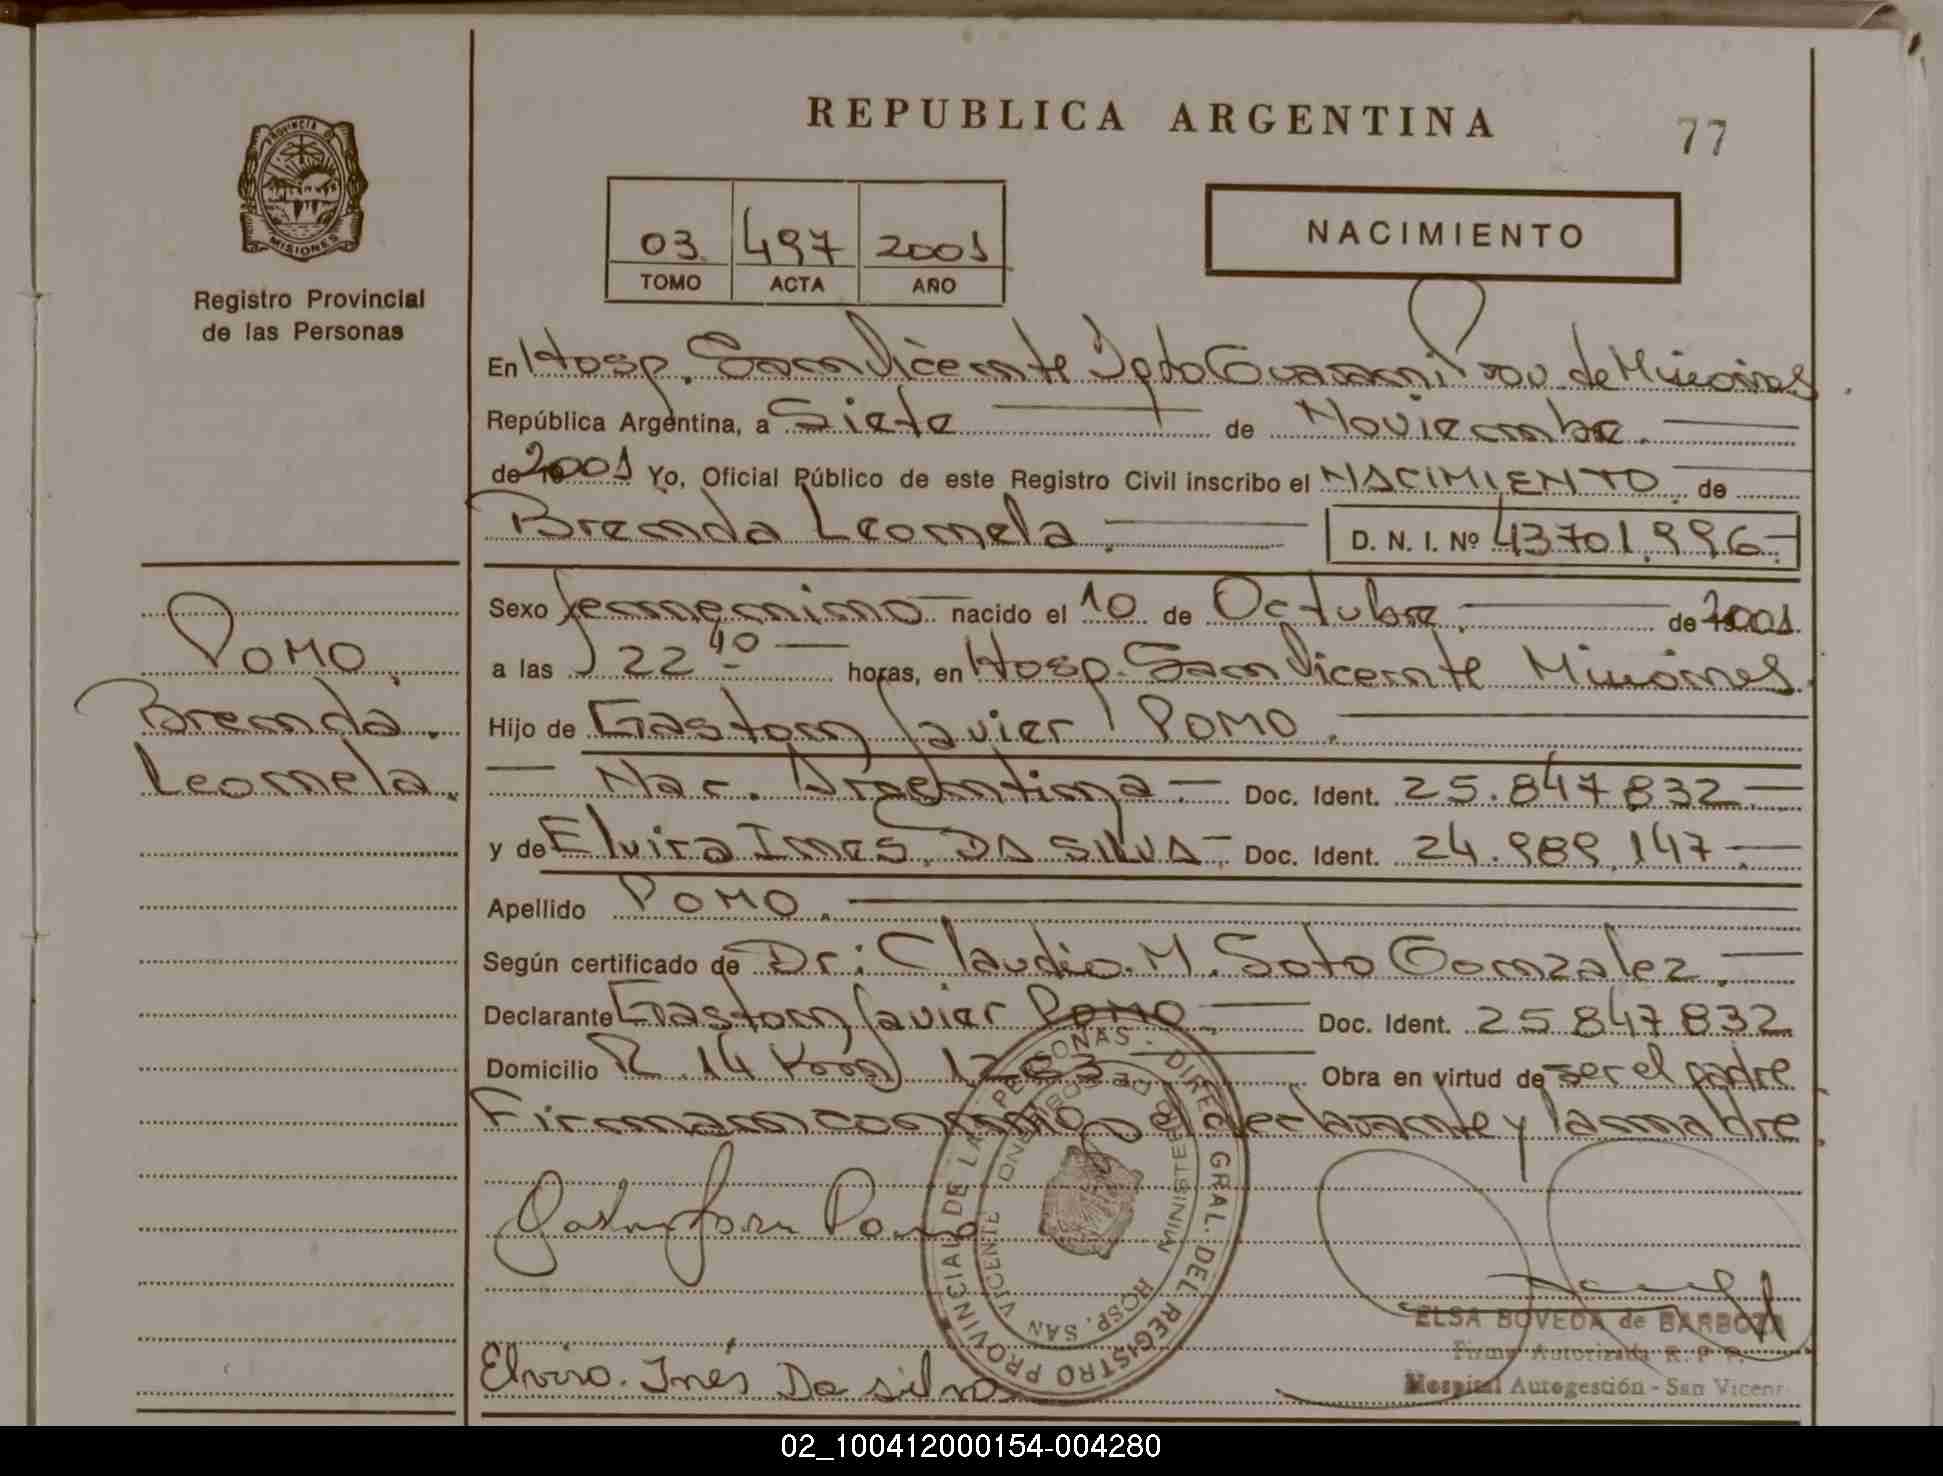 REPUBLICA ARGENTINA
77
PROVINCIA DE
MISIONES
Registro Provincial
de las Personas
03 497 2001
TOMO ACTA AÑO
NACIMIENTO
En Hosp. San Vicente Dpto Guarani Prov. de Misiones
República Argentina, a Siete de Noviembre
de 2001 Yo, Oficial Público de este Registro Civil inscribo el NACIMIENTO de
Brenda Leonela. D. N. I. Nº 43701.996-
Sexo femenino nacido el 10 de Octubre de 2001
a las 22 40 horas, en Hosp. San Vicente Misiones
Hijo de Gaston Javier POMO.
Nac. Argentina- Doc. Ident. 25.847.832
y de Elvira Ines DA SILVA- Doc. Ident. 24.989.147
Apellido POMO.
Según certificado de Dr: Claudio M. Soto Gonzalez.
Declarante Gaston Javier POMO Doc. Ident. 25 847 832
Domicilio R. 14 Km 1263 Obra en virtud de ser el padre
Firman conmigo el declarante y la madre.
POMO
Brenda.
Leonela.
Pomo
Elvira Inés Da silva
REGISTRO PROVINCIAL DE LAS PERSONAS - DIREC. GRAL. DEL
HOSP. SAN VICENTE
ELSA BOVEDA de BARBOZA
Firma Autorizada R. P. P.
Hospital Autogestión - San Vicent
02_100412000154-004280